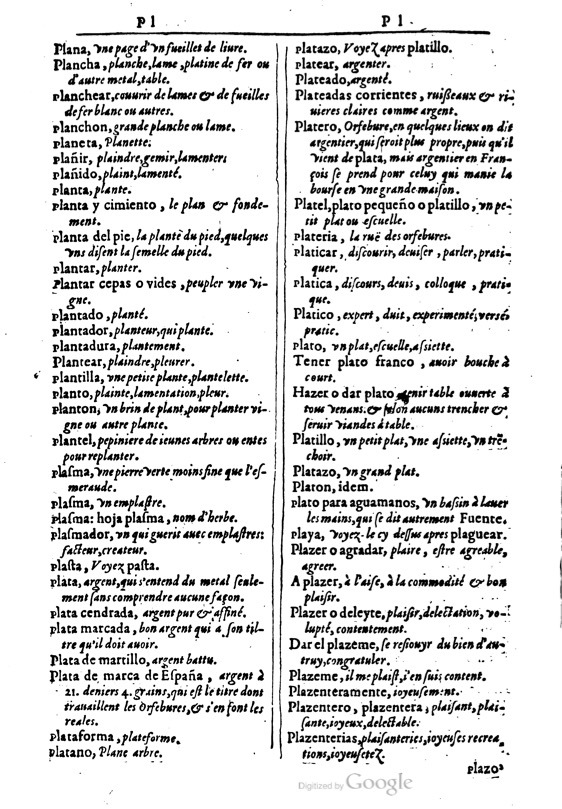 Pl
Plana, vne page d'vn fueillet de liure.
Plancha, planche, lame, platine de fer ou
d'autre metal, table.
planchear, couurir de lames & de fueilles
de fer blanc ou autres.
planchon, grande planche ou lame.
planeta, Planette.
plañir, plaindre, gemir, lamenter.
plañido, plaint, lamenté.
planta, plante.
planta y cimiento, le plan & fonde-
ment.
planta del pie, la plante du pied, quelques
vns disent la semelle du pied.
plantar, planter.
Plantar cepas o vides, peupler vne vi-
gne.
plantado, planté.
plantador, planteur, qui plante.
plantadura, plantement.
Plantear, plaindre, pleurer.
plantilla, vne petite plante, plantelette.
planto, plainte, lamentation, pleur.
planton, vn brin de plant, pour planter vi-
gne ou autre plante.
plantel, pepiniere de ieunes arbres ou entes
pour replanter.
plasma, vne pierre verte moins fine que l'es-
meraude.
plasma, vn emplastre.
Plasma: hoja plasma, nom d'herbe.
plasmador, vn qui guerit auec emplastres:
facteur, createur.
plasta, Voyez pasta.
plata, argent, qui s'entend du metal seule-
ment sans comprendre aucune façon.
plata cendrada, argent pur & affiné.
plata marcada, bon argent qui a son til-
tre qu'il doit auoir.
Plata de martillo, argent battu.
Plata de marca de España, argent à
21. deniers 4. grains, qui est le titre dont
trauaillent les Orfebures, & s'en font les
reales.
plataforma, plateforme.
platano, Plane arbre.
Pl
platazo, Voyez apres platillo.
platear, argenter.
Plateado, argenté.
Plateadas corrientes, ruisseaux & ri-
uieres claires comme argent.
Platero, Orfebure, en quelques lieux on dit
argentier, qui seroit plus propre, puis qu'il
vient de plata, mais argentier en Fran-
çois se prend pour celuy qui manie la
bourse en vne grande maison.
Platel, plato pequeño o platillo, vn pe-
tit plat ou escuelle.
Plateria, la ruë des orfebures.
Platicar, discourir, deuiser, parler, prati-
quer.
Platica, discours, deuis, colloque, prati-
que.
Platico, expert, duit, experimenté, versé
pratic.
Plato, vn plat, escuelle, assiette.
Tener plato franco, auoir bouche à
court.
Hazer o dar plato, tenir table ouuerte à
tous venans. & selon aucuns trencher &
seruir viandes à table.
Platillo, vn petit plat, vne assiette, vn trẽ-
choir.
Platazo, vn grand plat.
Platon, idem.
plato para aguamanos, vn bassin à lauer
les mains, qui se dit autrement Fuente.
playa, voyez-le cy dessus apres plaguear.
Plazer o agradar, plaire, estre agreable,
agreer.
A plazer, à l'aise, à la commodité & bon
plaisir.
Plazer o deleyte, plaisir, delectation, vo-
lupté, contentement.
Dar el plazeme, se resiouyr du bien d'au-
truy, congratuler.
Plazeme, il me plaist, i'en suis content.
Plazenteramente, ioyeusement.
Plazentero, plazentera, plaisant, plai-
sante, ioyeux, delectable.
Plazenterias, plaisanteries, ioyeuses recrea-
tions, ioyeusetez.
plazo²
Digitized by Google